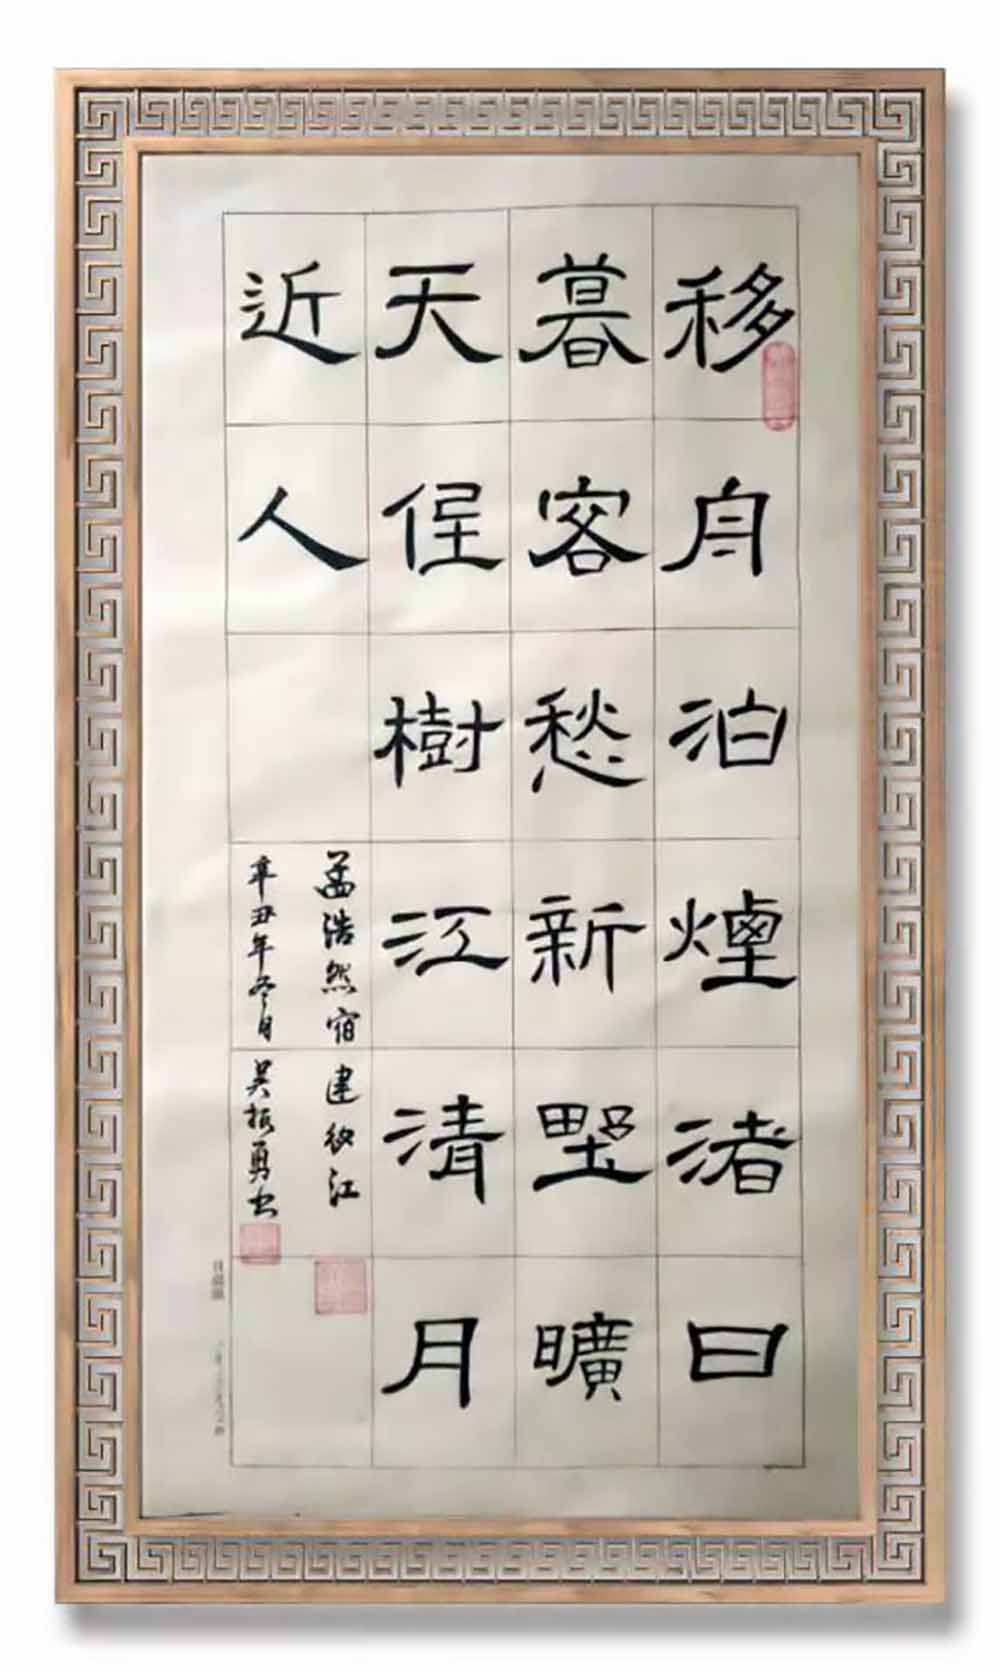 移舟泊煙渚日
暮客愁新野曠
天低樹江清月
近人
孟浩然宿建德江
辛丑年冬月吴振勇书